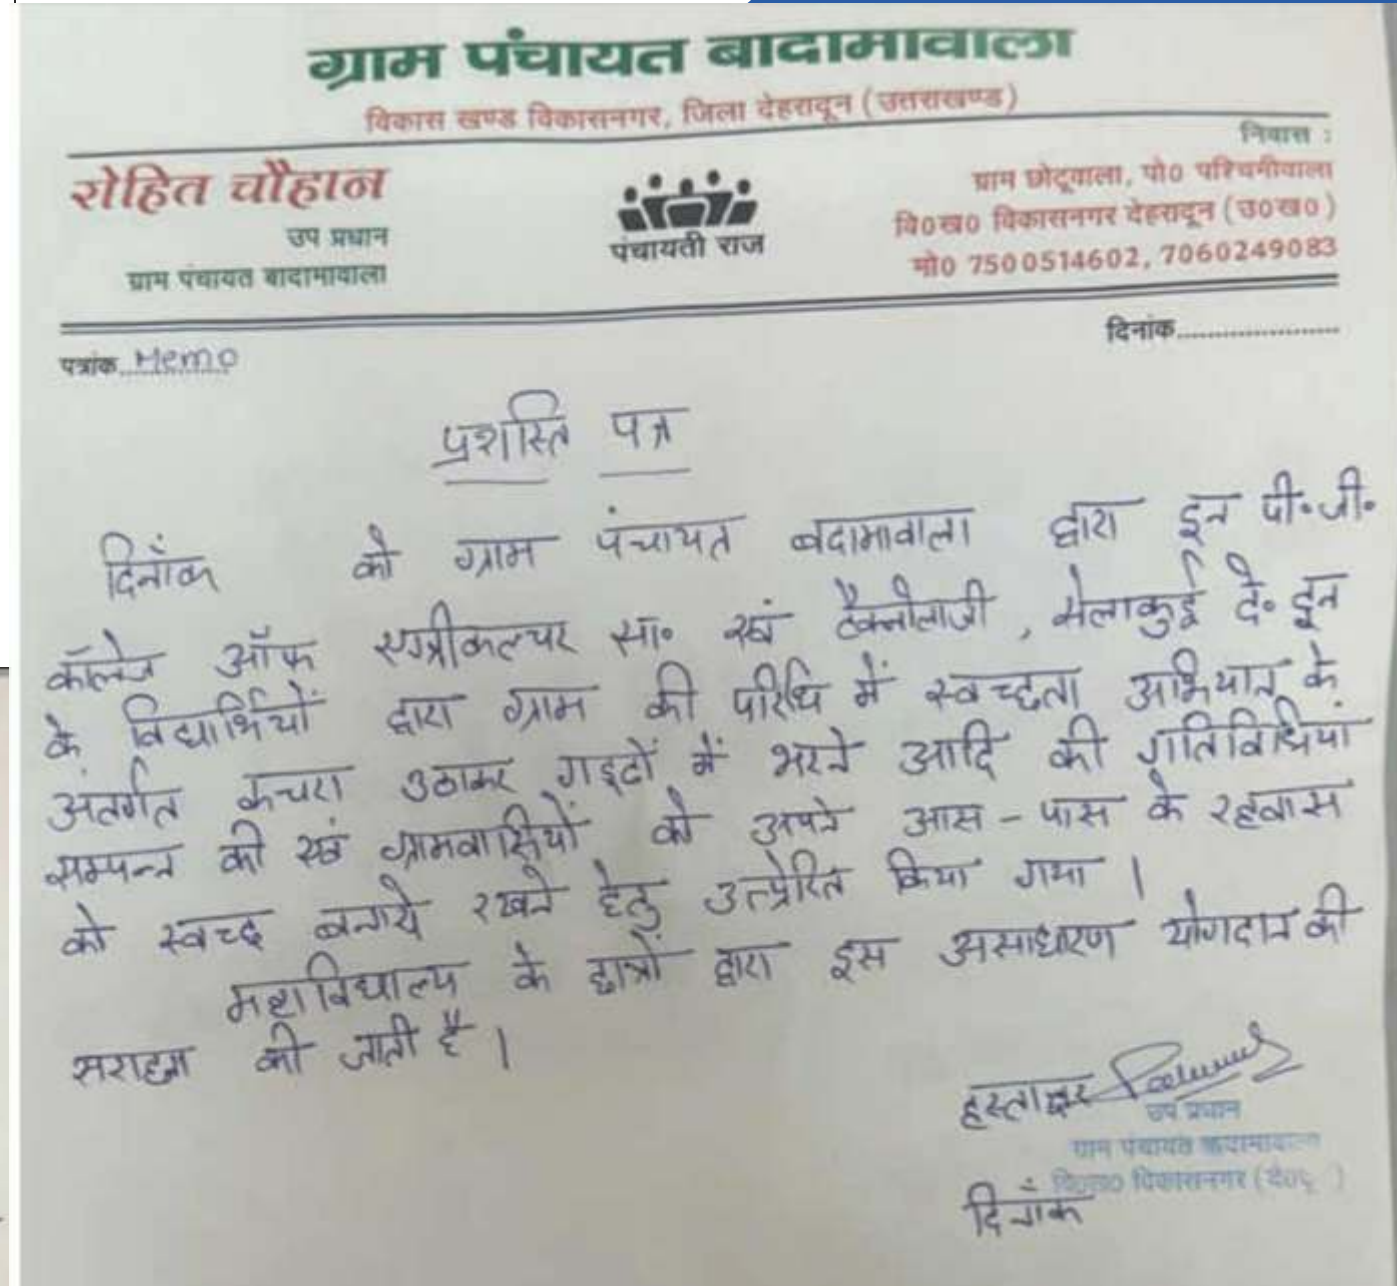 ग्राम पंचायत बादामावाला
विकास खण्ड विकासनगर, जिला देहरादून (उत्तराखण्ड)
रोहित चौहान
उप प्रधान
ग्राम पंचायत बादामावाला
पंचायती राज
निवास :
ग्राम छोटूवाला, पो0 पश्चिमीवाला
वि0ख0 विकासनगर देहरादून (उ0ख0)
मो0 7500514602, 7060249083
पत्रांक Memo
दिनांक
प्रशस्ति पत्र
दिनाँक को ग्राम पंचायत बदामावाला द्वारा इन पी॰जी॰
कॉलेज ऑफ एग्रीकल्चर सा॰ एवं टैक्नोलाजी, मेलाकुई दे॰ दून
के विद्यार्थियों द्वारा ग्राम की परिधि में स्वच्छता अभियान के
अंतर्गत कचरा उठाकर गड्ढों में भरने आदि की गतिविधियां
सम्पन्न की एवं ग्रामवासियों को अपने आस-पास के रहवास
को स्वच्छ बनाये रखने हेतु उत्प्रेरित किया गया ।
महाविधालय के छात्रों द्वारा इस असाधारण योगदान की
सराहना की जाती है ।
हस्ताक्षर
उप प्रधान
ग्राम पंचायत बादामावाला
वि0ख0 विकासनगर (दे0दू )
दिनाँक